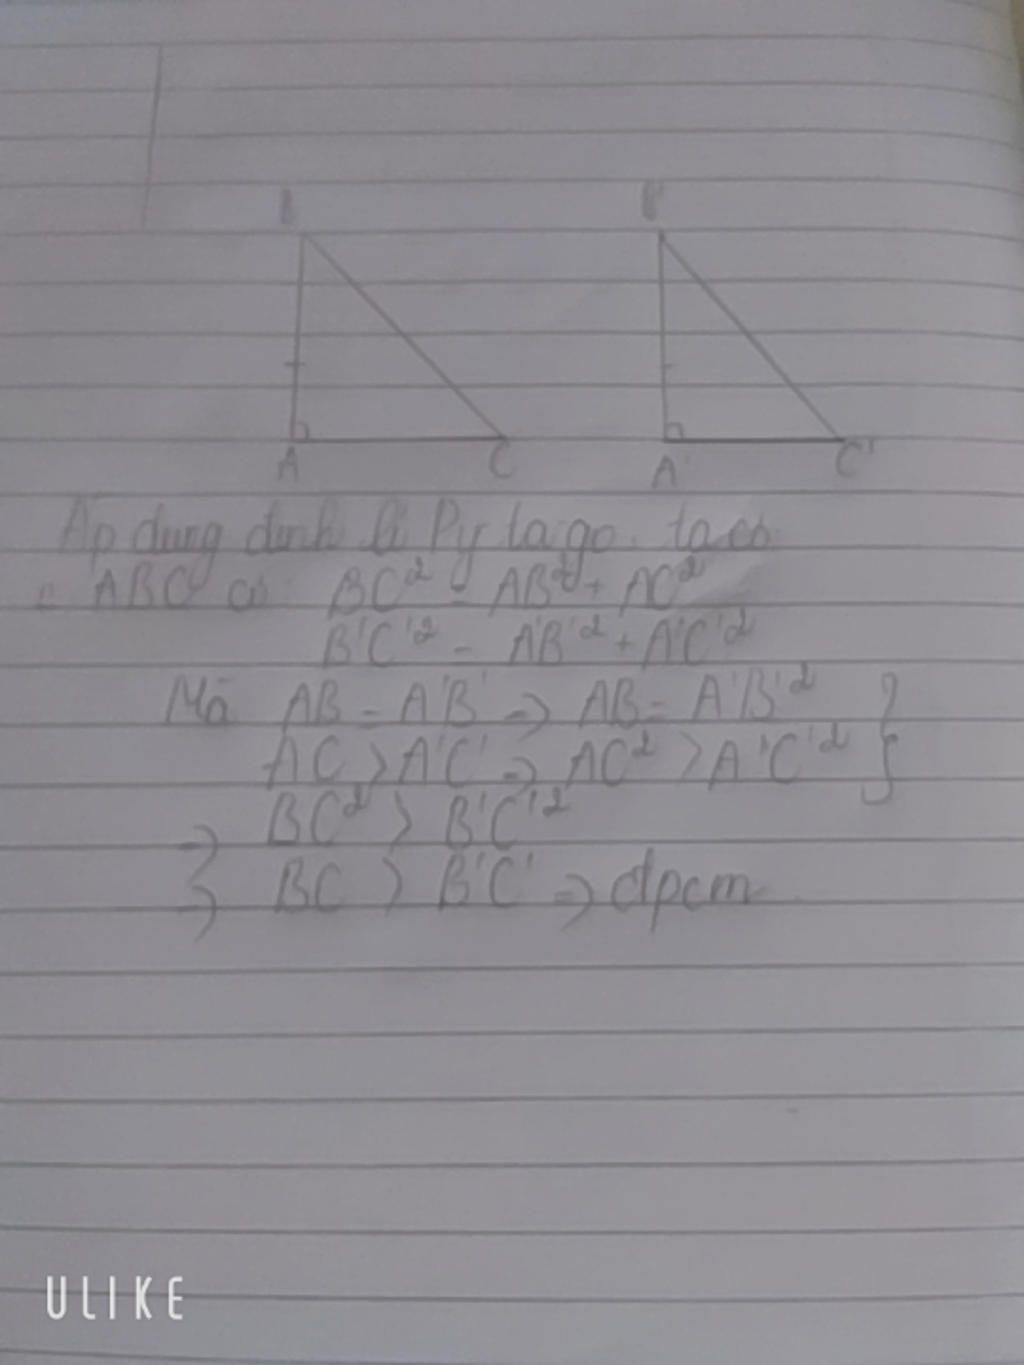 B B'
A C A' C'
Áp dụng định lí Py ta go. ta có
ABC có BC² = AB² + AC²
B'C'² = A'B'² + A'C'²
Mà AB = A'B' => AB = A'B'² }
AC > A'C' => AC² > A'C'²
=> BC² > B'C'²
=> BC > B'C' => đpcm
ULIKE